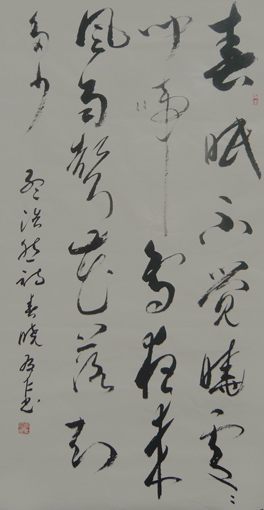 春眠不觉晓处々
闻啼鸟夜来
风雨声花落知
多少
孟浩然诗春晓